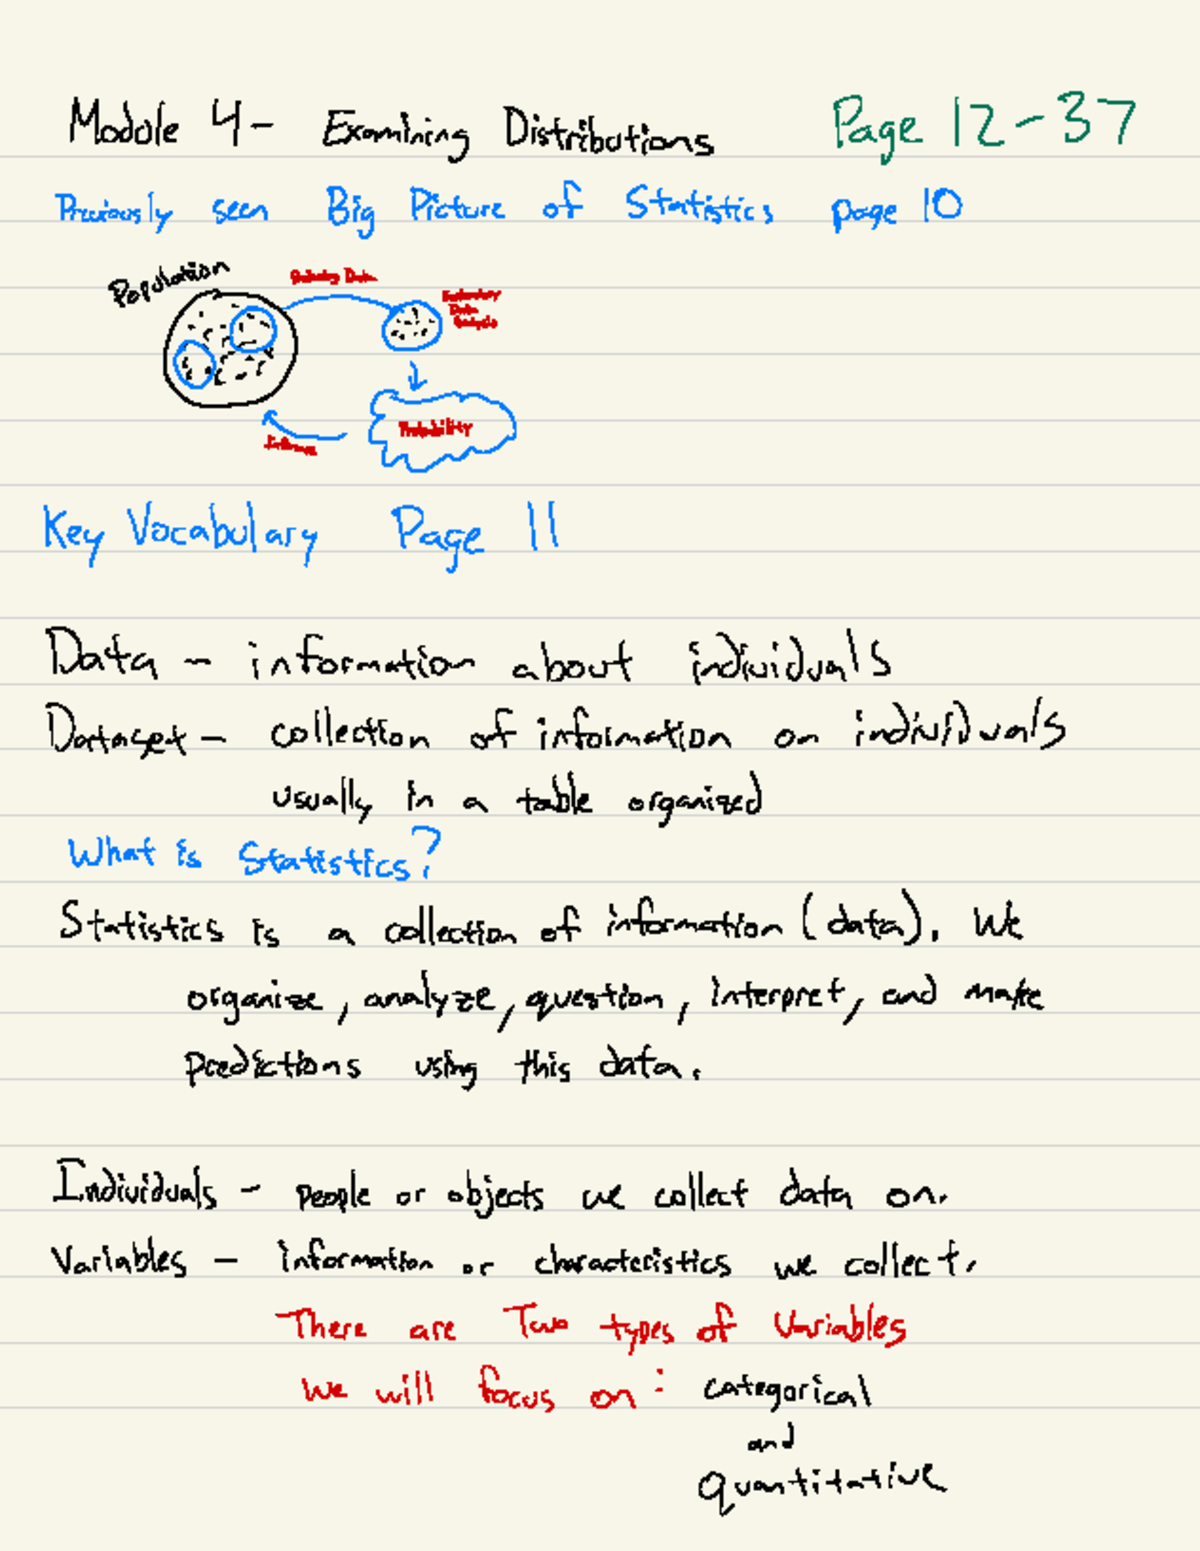 Module 4- Examining Distributions Page 12-37
Previously seen Big Picture of Statistics page 10
Population
Data
Exploratory
Data
Analysis
Probability
Inference
Key Vocabulary Page 11
Data - information about individuals
Dataset - collection of information on individuals
usually in a table organized
What is Statistics?
Statistics is a collection of information (data). We
organize, analyze, question, interpret, and make
predictions using this data.
Individuals - people or objects we collect data on.
Variables - information or characteristics we collect.
There are Two types of Variables
We will focus on: categorical
and
quantitative